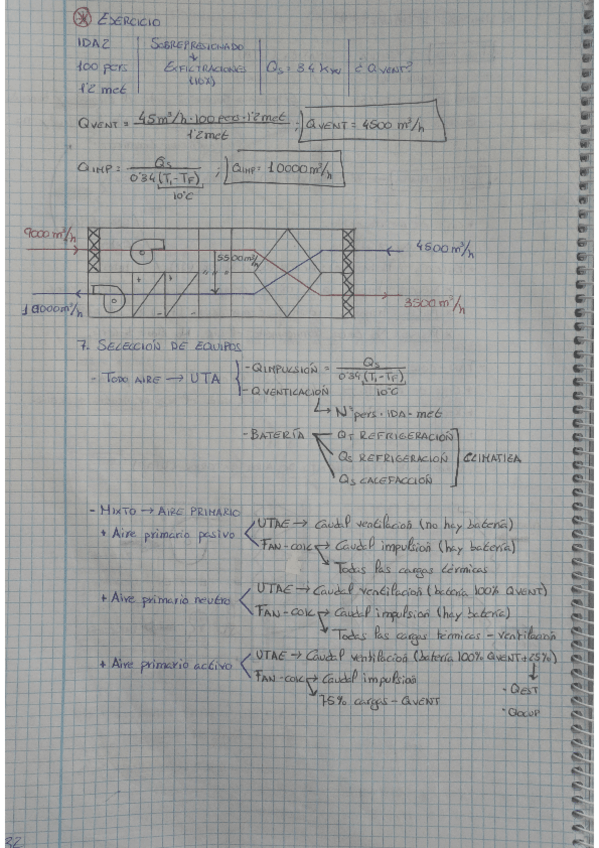 * EJERCICIO
IDA2 | SOBREPRESIONADO | QS = 34 KW | ¿QVENT?
100 pers EXFILTRACIONES
1'2 met (10%)
QVENT = 45 m³/h · 100 pers · 1'2 met / 1'2 met ; QVENT = 4500 m³/h
QIMP = QS / 0'34 (Ti - TF) ; QIMP = 10000 m³/h
10°C
9000 m³/h 5500 m³/h 4500 m³/h
10000 m³/h 3500 m³/h
+ - + -
7. SELECCIÓN DE EQUIPOS
- TODO AIRE → UTA - QIMPULSIÓN = QS / 0'34 (Ti - TF)
10°C
- QVENTILACIÓN
↳ Nº pers · IDA - met
- BATERÍA QT REFRIGERACIÓN
QS REFRIGERACIÓN CLIMATICA
QS CALEFACCIÓN
- MIXTO → AIRE PRIMARIO
+ Aire primario pasivo UTAE → Caudal ventilación (no hay batería)
FAN-COIL → Caudal impulsión (hay batería)
Todas las cargas térmicas
+ Aire primario neutro UTAE → Caudal ventilación (batería 100% QVENT)
FAN-COIL → Caudal impulsión (hay batería)
Todas las cargas térmicas - ventilación
+ Aire primario activo UTAE → Caudal ventilación (batería 100% QVENT + 25%)
FAN-COIL → Caudal impulsión
75% cargas - QVENT
· QEST
· QOCUP
32